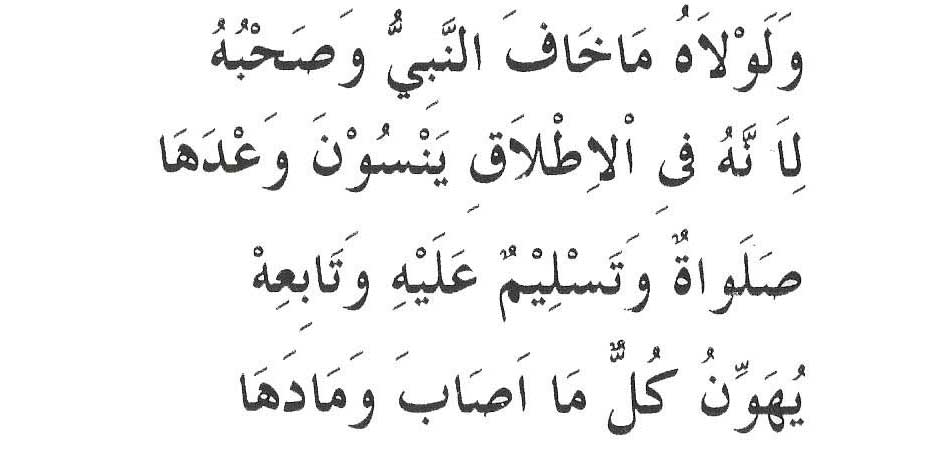 وَلَوْلاَهُ مَاخَافَ النَّبِيُّ وَصَحْبُهُ
لِاَ نَّهُ فِى اْلاِطْلاَقِ يَنْسُوْنَ وَعْدَهَا
صَلَواةٌ وَتَسْلِيْمٌ عَلَيْهِ وَتَابِعِهْ
يُهَوِّنُ كُلٌّ مَا اَصَابَ وَمَادَهَا